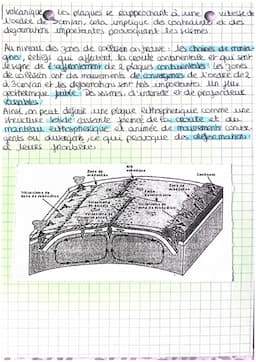 volcanique. Les plaques se rapprochent à une vitesse de
l'ordre de 5cm/an, cela implique des contraintes et des
déformations importantes provoquant les séismes.
Au niveau des zones de collision on trouve : les chaînes de monta-
gnes, reliefs qui affectent la croûte continentale et qui sont
le signe de l'affrontement de 2 plaques continentales. Les zones
de collision ont des mouvements de convergence de l'ordre de 2
à 5cm/an et les déformations sont très importantes. Un flux
géothermique faible. Les séismes d'intensité et de profondeur
variables.
Ainsi, on peut définir une plaque lithosphérique comme une
structure solide cassante formée de la croûte et du
manteau lithosphérique et animée de mouvements conver-
gents ou divergents, ce qui provoque des déformations
à leurs frontières.
Zone de
subduction
Rift
océanique
Zone de
subduction
Continent
Volcanisme de
zone de subduction
Volcanisme
de dorsale